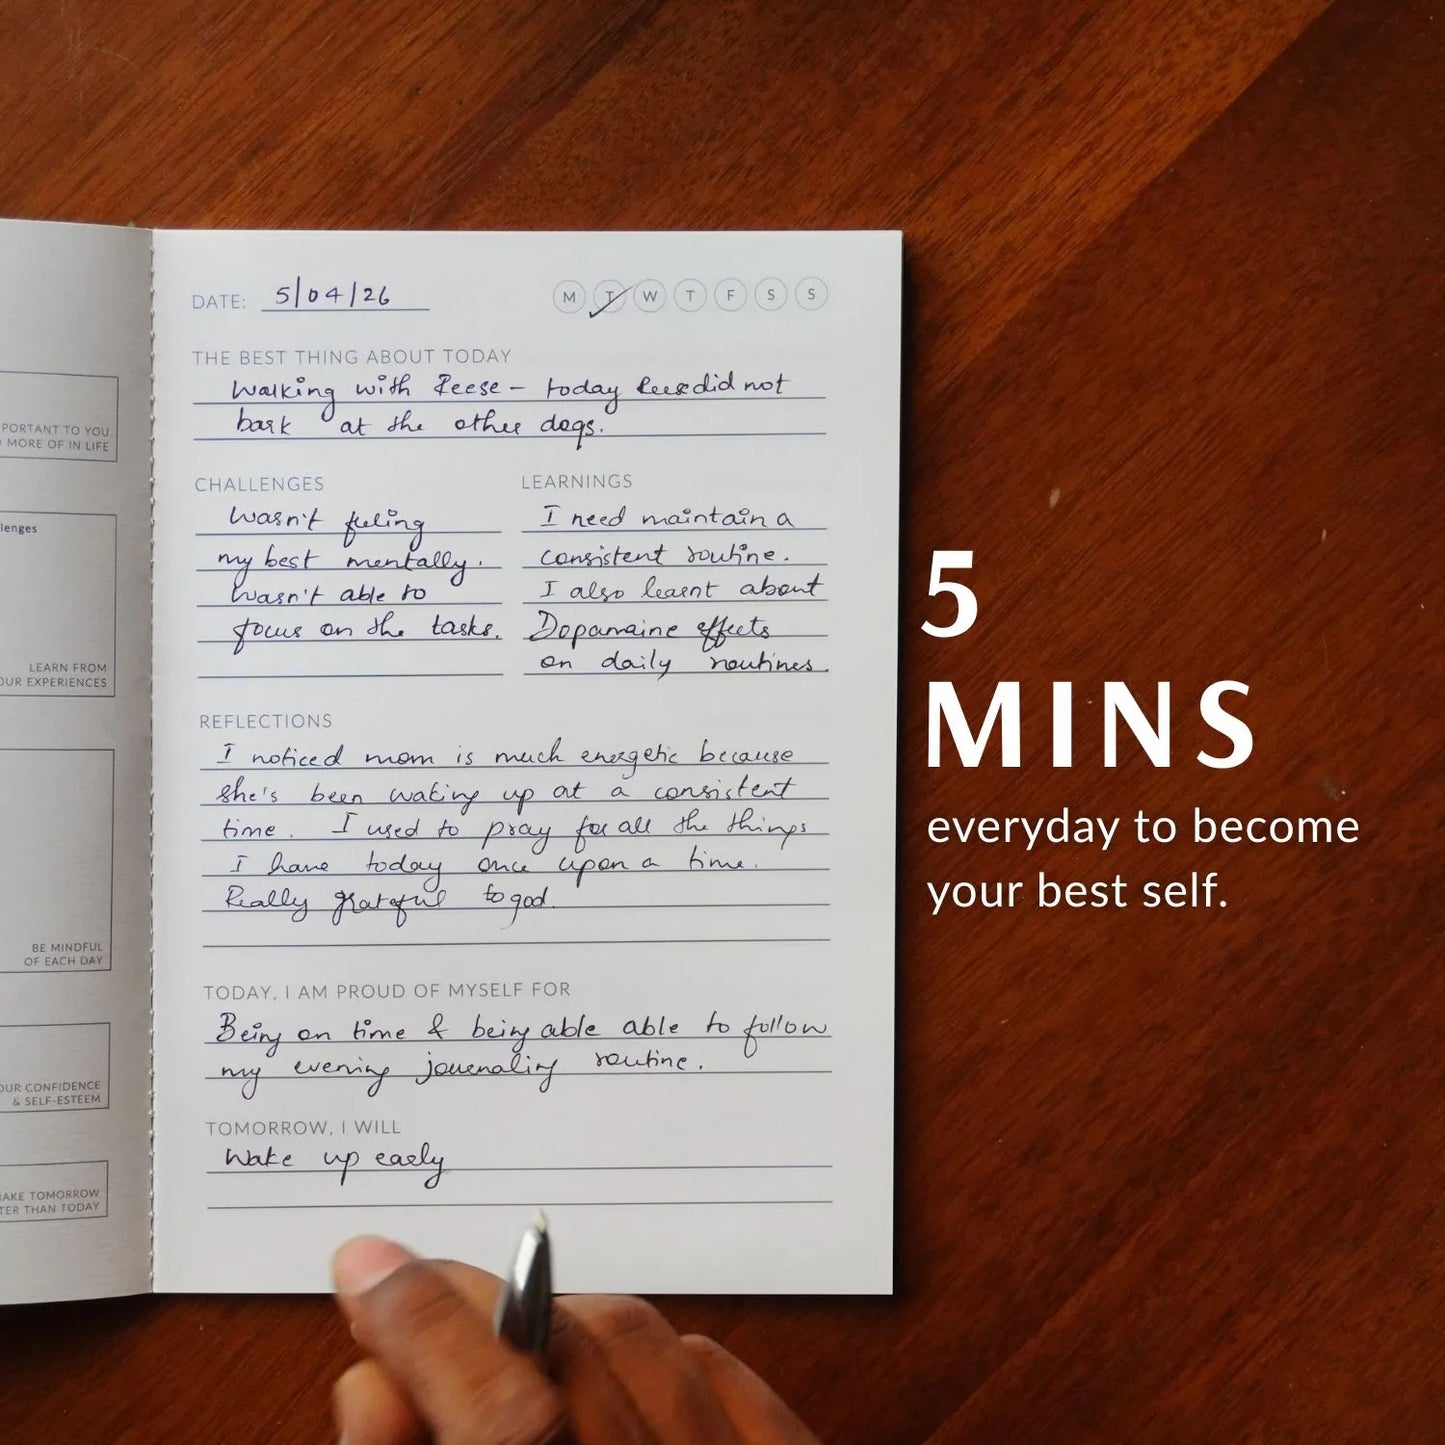 DATE: 5/04/26
M T W T F S S
THE BEST THING ABOUT TODAY
Walking with Reese – today Reese did not
bark at the other dogs.
CHALLENGES
Wasn't feeling
my best mentally.
Wasn't able to
focus on the tasks.
LEARNINGS
I need maintain a
consistent routine.
I also learnt about
Dopamaine effects
on daily routines.
REFLECTIONS
I noticed mom is much energetic because
she's been waking up at a consistent
time. I used to pray for all the things
I have today once upon a time.
Really grateful to god.
TODAY, I AM PROUD OF MYSELF FOR
Being on time & being able able to follow
my evening journaling routine.
TOMORROW, I WILL
Wake up early
PORTANT TO YOU
MORE OF IN LIFE
lenges
LEARN FROM
OUR EXPERIENCES
BE MINDFUL
OF EACH DAY
OUR CONFIDENCE
& SELF-ESTEEM
MAKE TOMORROW
TER THAN TODAY
5
MINS
everyday to become
your best self.